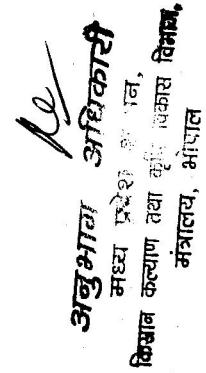 अनुभाग अधिकारी
मध्य प्रदेश
किसान कल्याण तथा कृषि विकास विभाग,
मंत्रालय, भोपाल